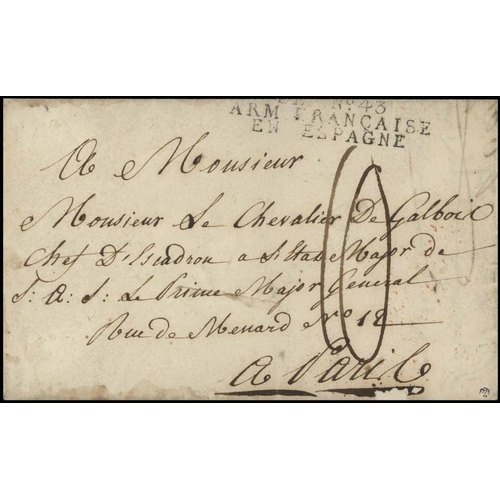 No. 43
ARM FRANÇAISE
EN ESPAGNE
A Monsieur
Monsieur Le Chevalier De Galbois
Chef D'Escadron a L'Etat Major de
S: A: S: Le Prince Major General
Rue de Menard No 12
A Paris